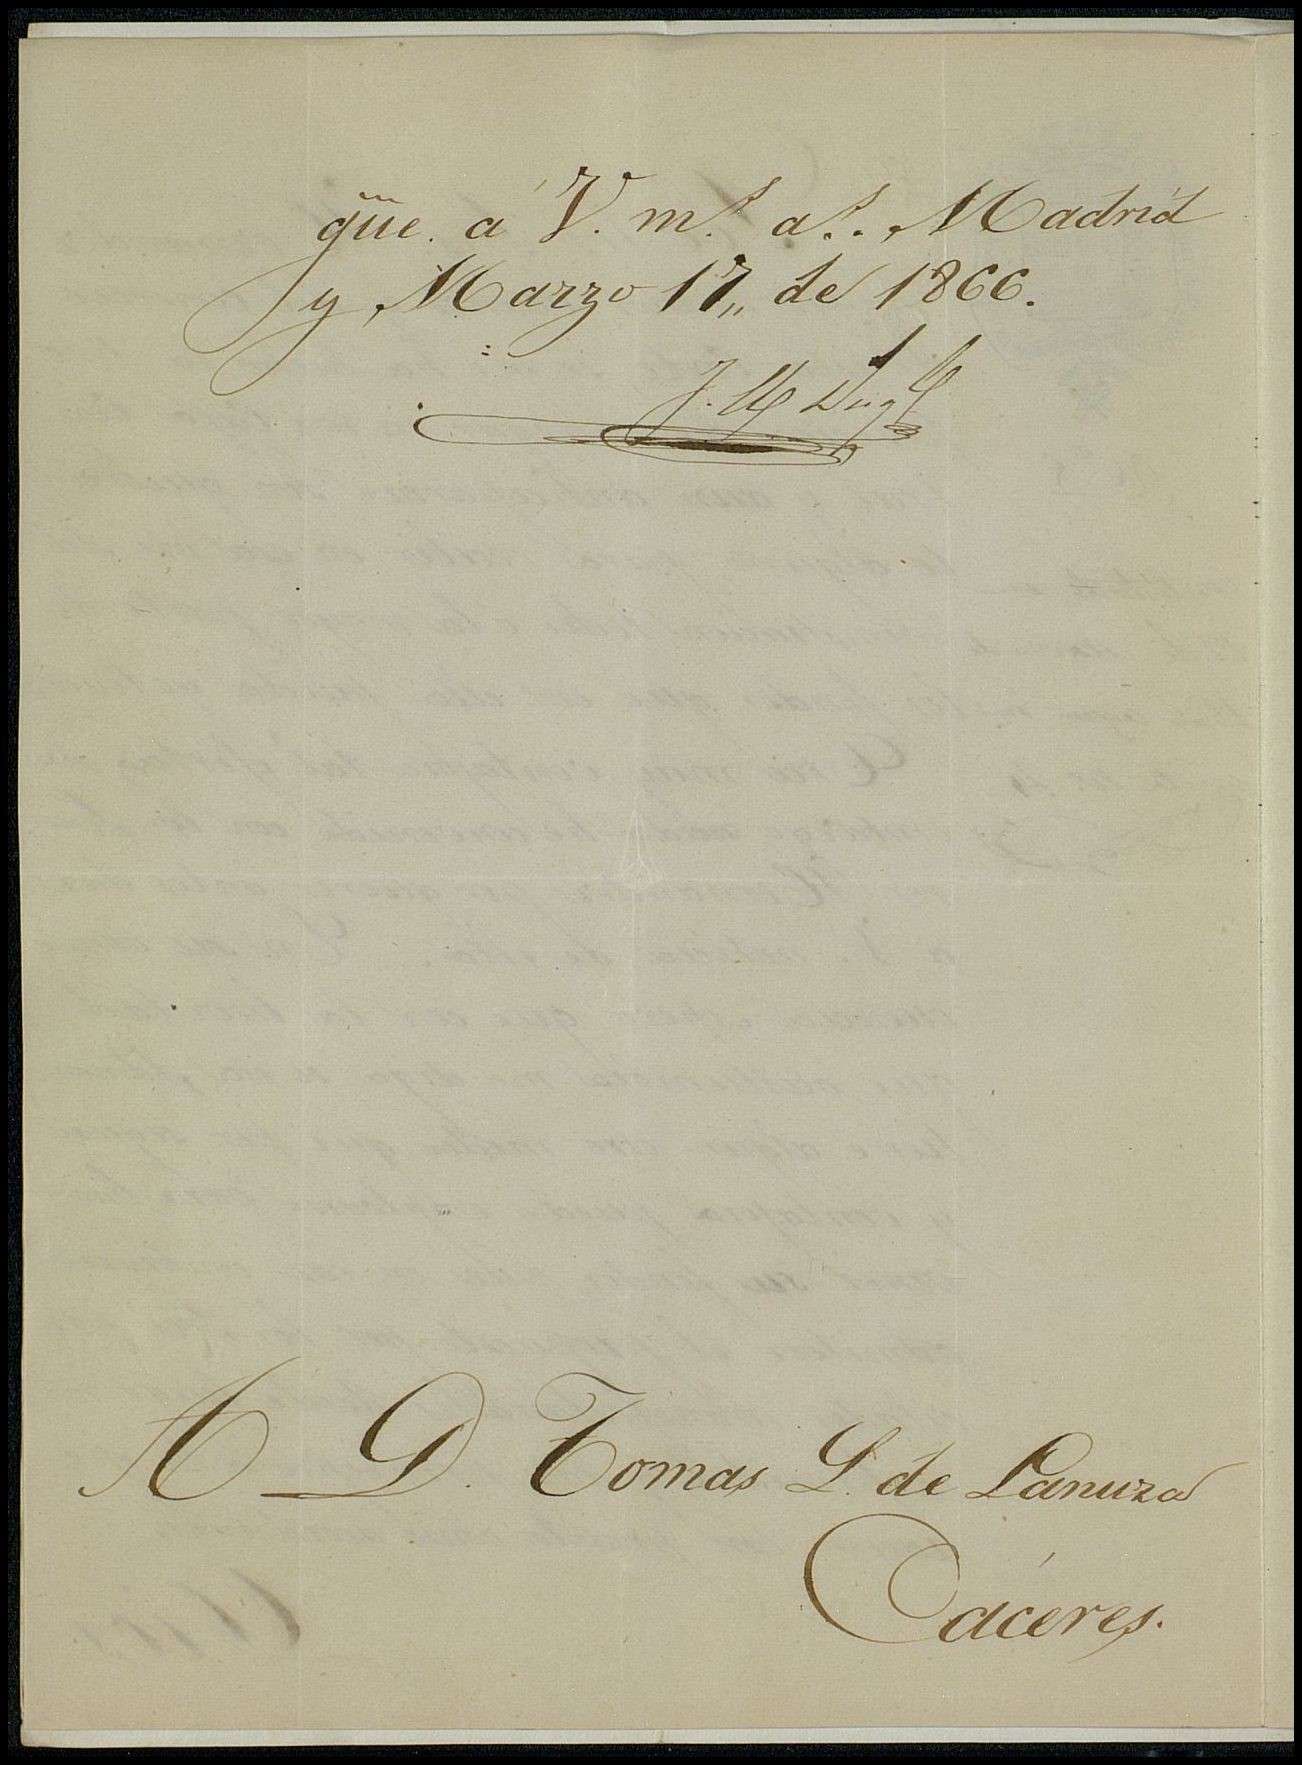 gũe. á V. m.s a.s. Madrid
y Marzo 17,, de 1866.
A D. Tomas L. de Lanuza
Cáceres.